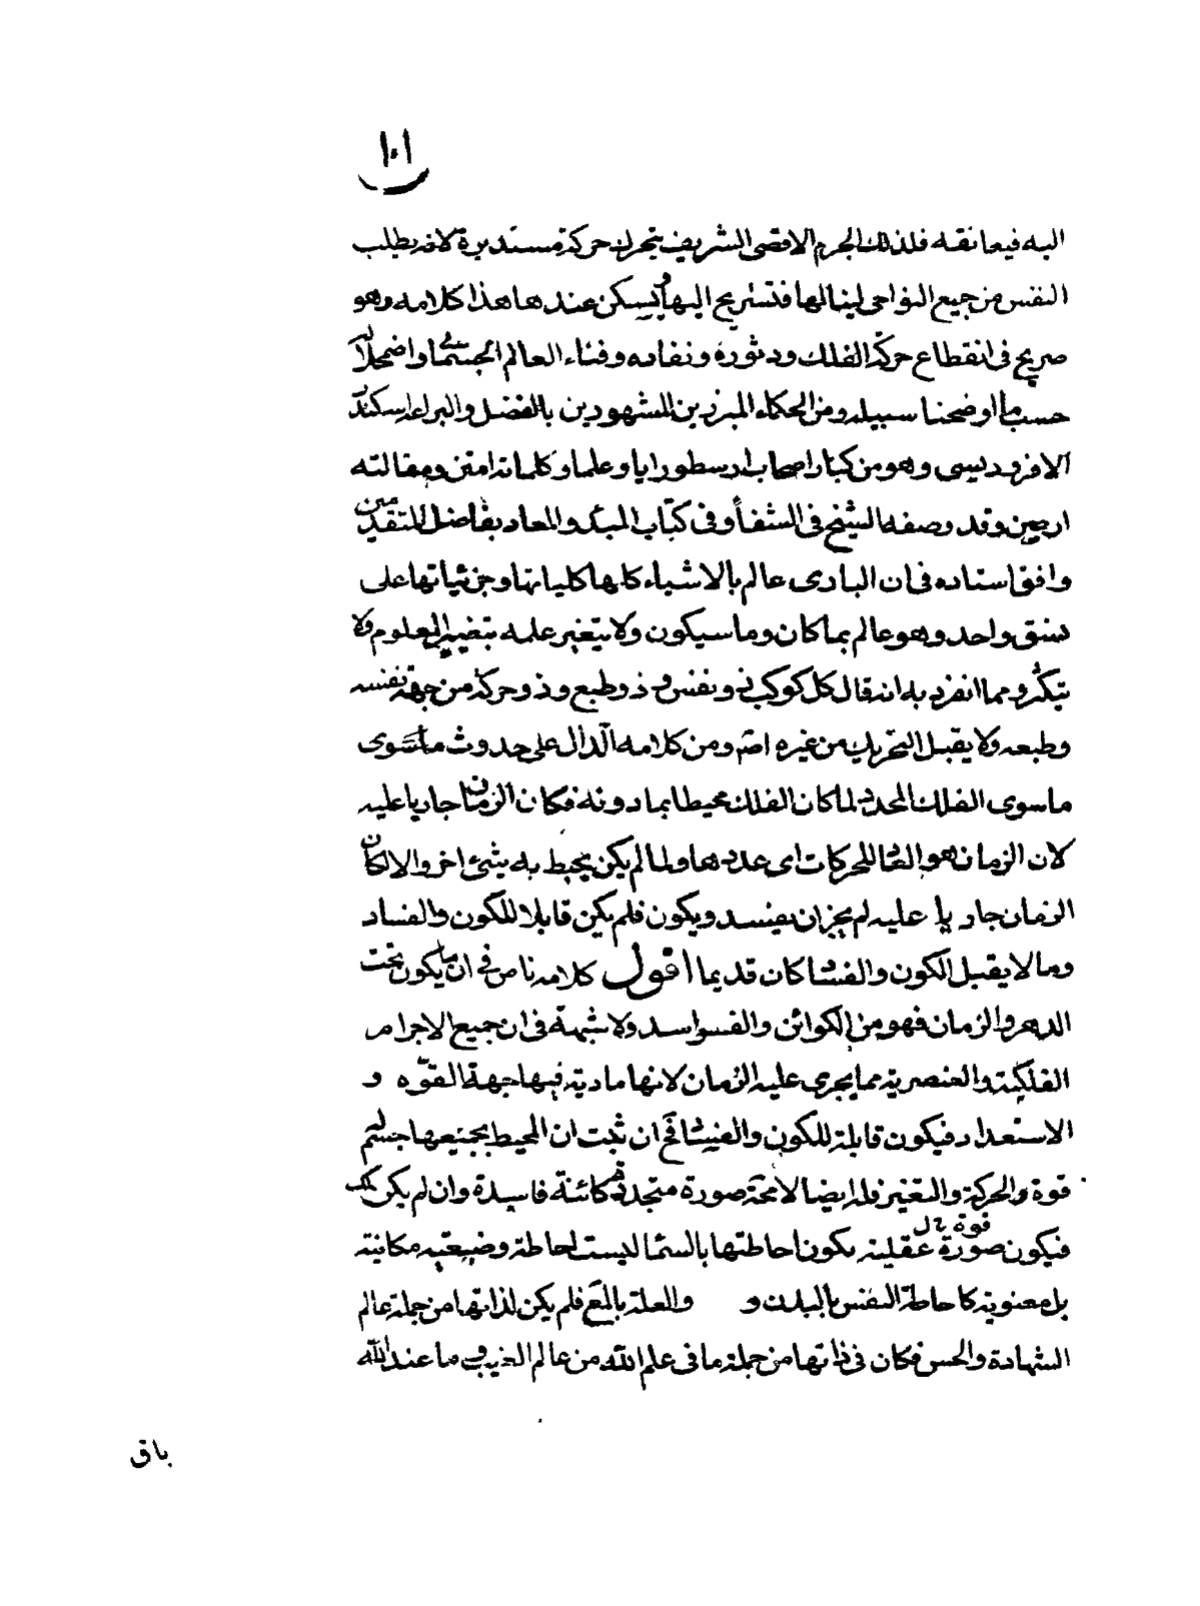 ١٠١
اليه فيعانقه فلذلك الجرم الاقصى الشريف يتحرك حركة مستديرة لانه يطلب
النفس من جميع النواحى لينالها فتستريح اليها ويسكن عندها هذا كلامه وهو
صريح فى انقطاع حركة الفلك ودثوره ونفاده وفناء العالم الجسمانى واضمحلاله
حسب ما اوضحنا سبيله ومن الحكماء المبرزين المشهودين بالفضل والبراعة اسكندر
الافروديسى وهو من كبار اصحاب ارسطو رايا وعلما وكلماته امتن ومقالته
ارصن وقد وصفه الشيخ فى الشفا وفى كتاب المبدء والمعاد بفاضل المتقدمين
وافق استاده فى ان البارى عالم بالاشياء كلها كلياتها وجزئياتها على
نسق واحد وهو عالم بما كان وما سيكون ولا يتغير علمه بتغير المعلوم ولا
يتكثر ومما انفرد به انه قال كل كوكب ذى ونفس وذو طبع وذو حركة من جهة نفسه
وطبعه ولا يقبل التحريك من غيره اصم ومن كلامه الدال على حدوث ما سوى
ما سوى الفلك المحدد لما كان الفلك محيطا بما دونه فكان الزمان جاريا عليه
لان الزمان هو العاد للحركات اى عددها ولما لم يكن يحيط به شئ اخر والا لكان
الزمان جاريا عليه لم يجز ان يفسد ويكون فلم يكن قابلا للكون والفساد
وما لا يقبل الكون والفسا كان قديما اقول كلامه ناص فى ان ما يكون تحت
الدهر والزمان فهو من الكوائن والفسواسد ولا شبهة فى ان جميع الاجرام
الفلكية والعنصرية مما يجرى عليه الزمان لانها مادية فيها جهة القوّه و
الاستعداد فيكون قابلة للكون والفسا فح ان ثبت ان المحيط بجميعها جسم له
قوة والحركة والتغير فله ايضا لا محة صورة متجددة كائنة فاسدة وان لم يكن كك
فيكون صورة عقلية يكون احاطتها بالسما ليست احاطة وضيعتيه مكانية
قوة خ ل
بل معنوية كاحاطة النفس بالبدن و والعلة بالمع فلم يكن لذاتها من جملة عالم
الشهادة والحس فكان فى ذاتها من جملة ما فى علم الله من عالم الغيب وما عند الله
باق